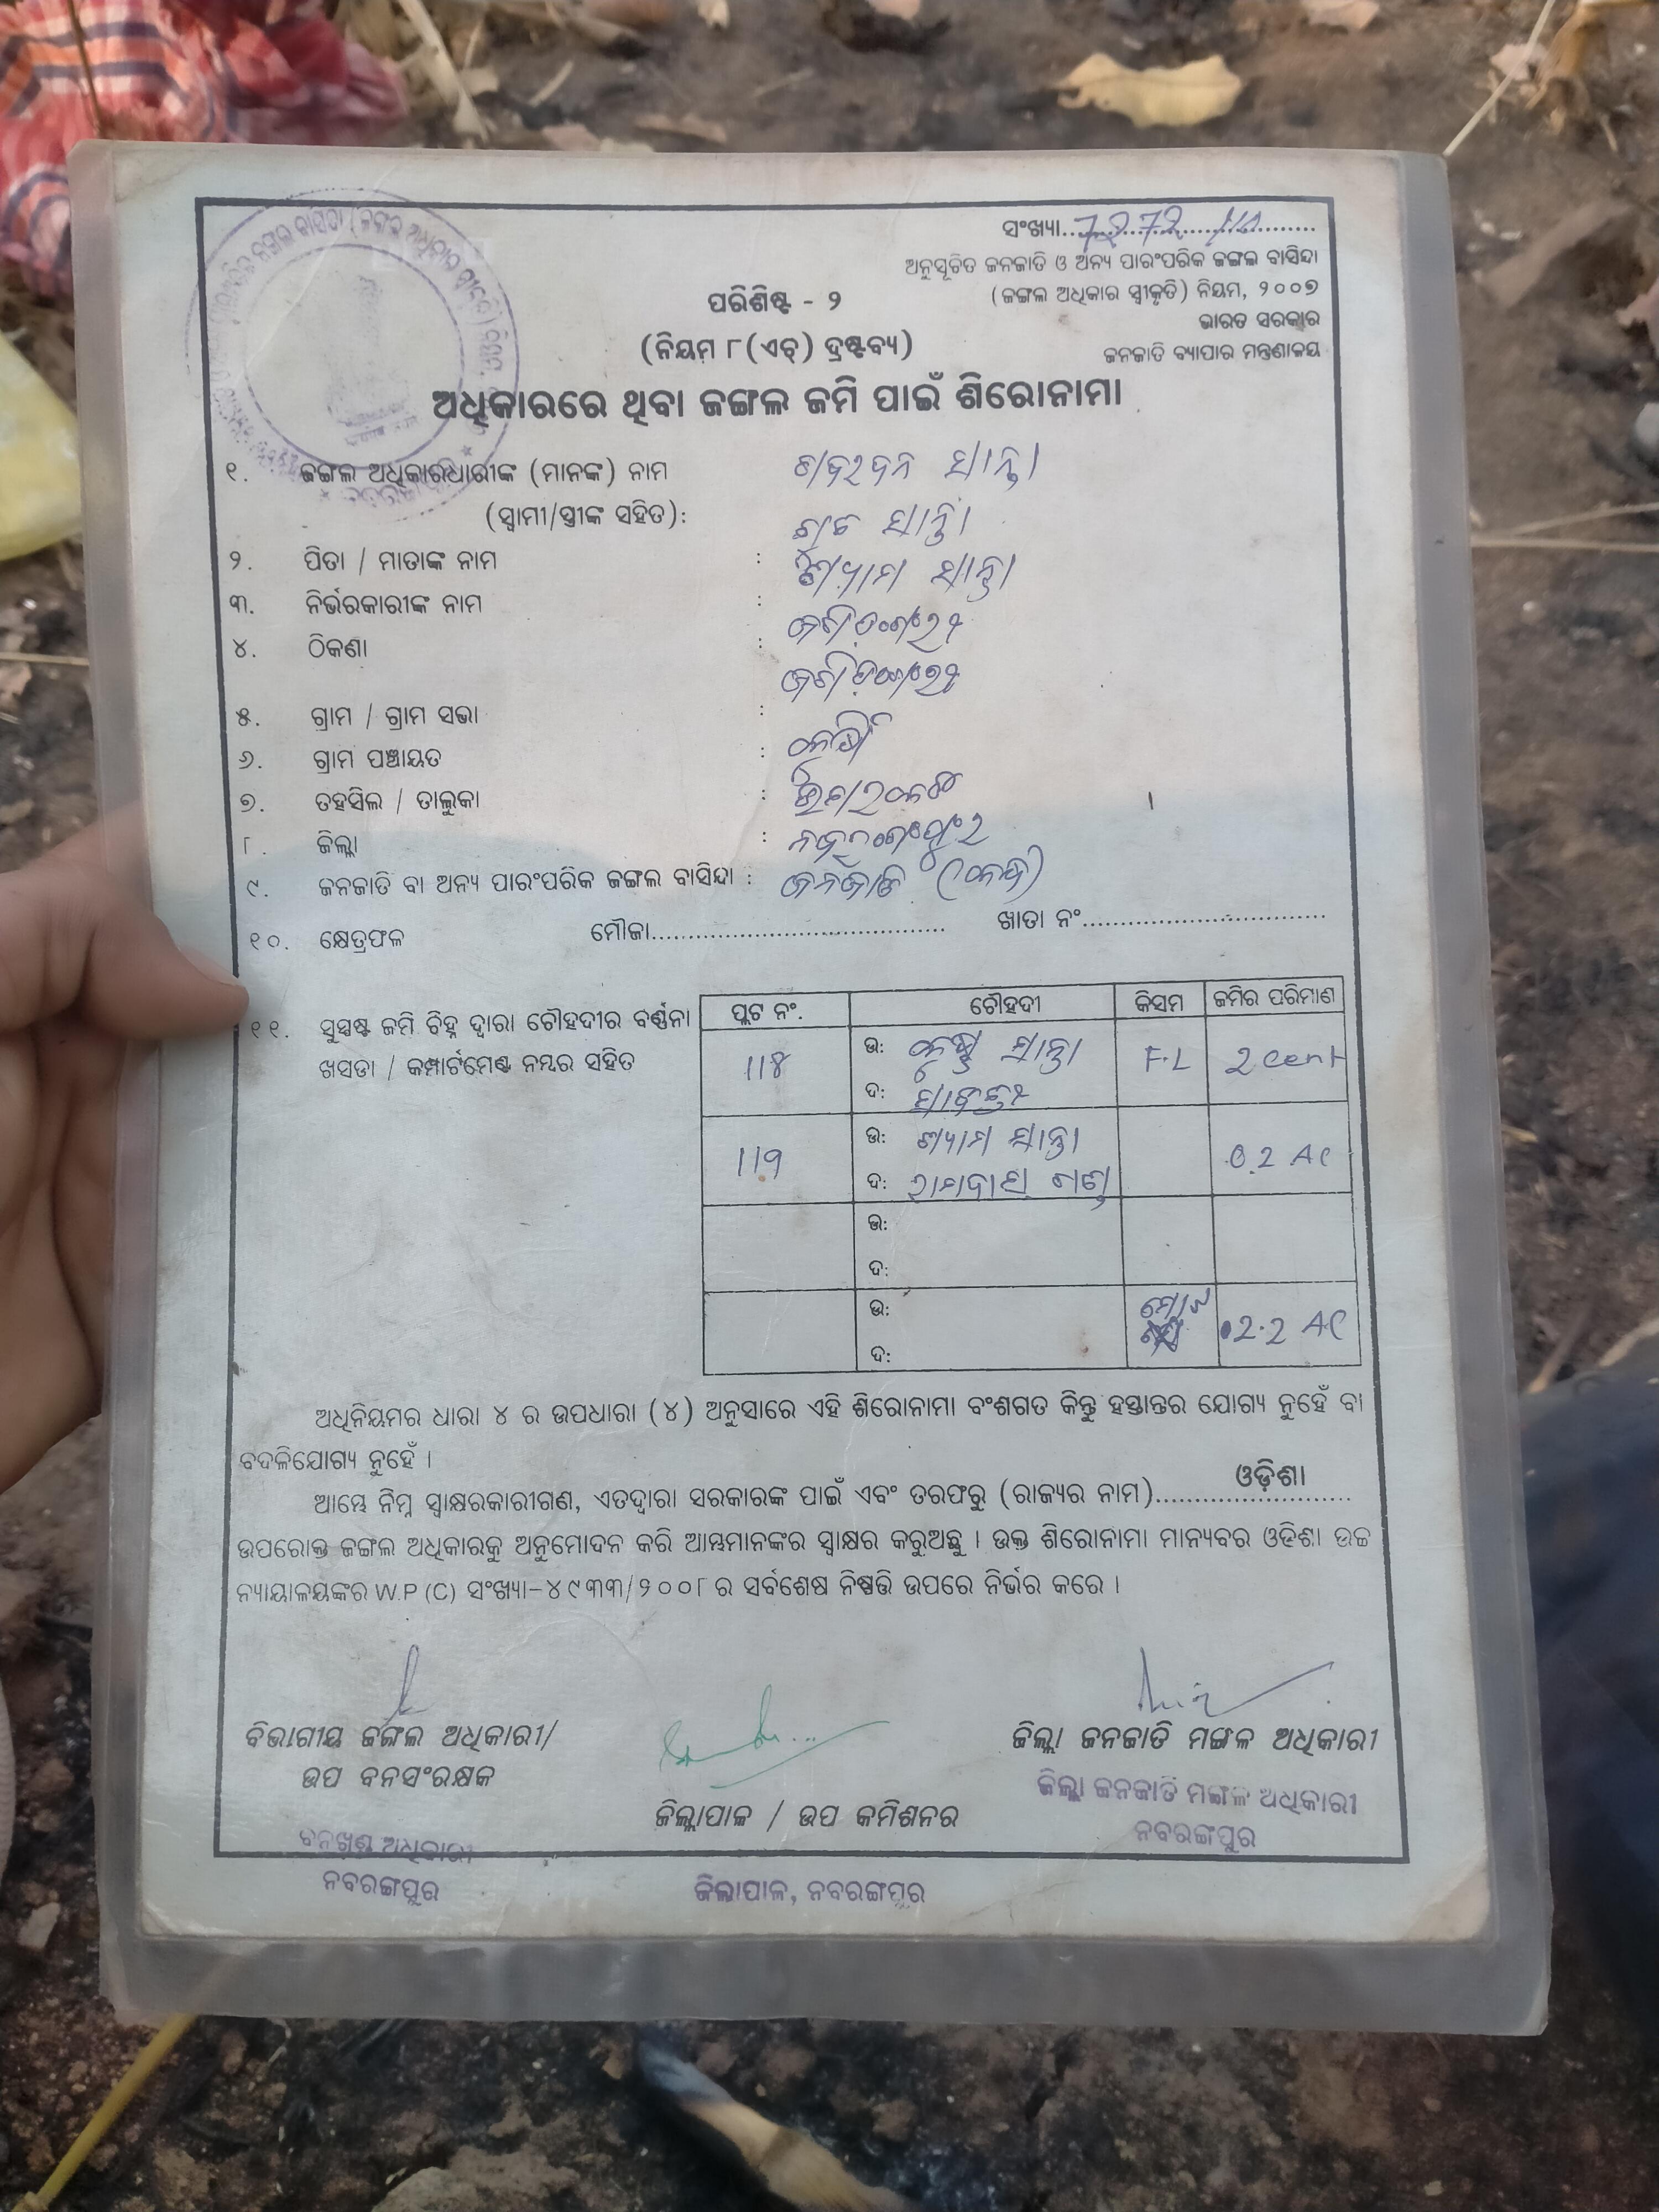 ସଂଖ୍ୟା....7272
ଅନୁସୂଚିତ ଜନଜାତି ଓ ଅନ୍ୟ ପାରଂପରିକ ଜଙ୍ଗଲ ବାସିନ୍ଦା
(ଜଙ୍ଗଲ ଅଧିକାର ସ୍ୱୀକୃତି) ନିୟମ, ୨୦୦୭
ଭାରତ ସରକାର
ଜନଜାତି ବ୍ୟାପାର ମନ୍ତ୍ରଣାଳୟ
ପରିଶିଷ୍ଟ - ୨
(ନିୟମ ୮(ଏଚ୍) ଦ୍ରଷ୍ଟବ୍ୟ)
ଅଧିକାରରେ ଥିବା ଜଙ୍ଗଲ ଜମି ପାଇଁ ଶିରୋନାମା
୧. ଜଙ୍ଗଲ ଅଧିକାରଧାରୀଙ୍କ (ମାନଙ୍କ) ନାମ ସାନ୍ତା
(ସ୍ୱାମୀ/ସ୍ତ୍ରୀଙ୍କ ସହିତ):
୨. ପିତା / ମାତାଙ୍କ ନାମ : ସାନ୍ତା
୩. ନିର୍ଭରକାରୀଙ୍କ ନାମ : ଶ୍ୟାମ ସାନ୍ତା
୪. ଠିକଣା :
୫. ଗ୍ରାମ / ଗ୍ରାମ ସଭା :
୬. ଗ୍ରାମ ପଞ୍ଚାୟତ :
୭. ତହସିଲ / ତାଲୁକା :
୮. ଜିଲ୍ଲା : ନବରଂଗପୁର
୯. ଜନଜାତି ବା ଅନ୍ୟ ପାରଂପରିକ ଜଙ୍ଗଲ ବାସିନ୍ଦା : ଜନଜାତି
୧୦. କ୍ଷେତ୍ରଫଳ ମୌଜା.................................... ଖାତା ନଂ..............................
୧୧. ସୁସ୍ପଷ୍ଟ ଜମି ଚିହ୍ନ ଦ୍ୱାରା ଚୌହଦୀର ବର୍ଣ୍ଣନା
ଖସଡା / କମ୍ପାର୍ଟମେଣ୍ଟ ନମ୍ବର ସହିତ
ପ୍ଲଟ ନଂ. ଚୌହଦୀ କିସମ ଜମିର ପରିମାଣ
ଉ: ସାନ୍ତା F.L 2 cent
ଦ:
ଉ: ଶ୍ୟାମ ସାନ୍ତା 0.2 AC
ଦ: ରାମଦାସ
ଉ:
ଦ:
ଉ: 2.2 AC
ଦ:
ଅଧିନିୟମର ଧାରା ୪ ର ଉପଧାରା (୪) ଅନୁସାରେ ଏହି ଶିରୋନାମା ବଂଶଗତ କିନ୍ତୁ ହସ୍ତାନ୍ତର ଯୋଗ୍ୟ ନୁହେଁ ବା
ବଦଳିଯୋଗ୍ୟ ନୁହେଁ ।
ଆମ୍ଭେ ନିମ୍ନ ସ୍ୱାକ୍ଷରକାରୀଗଣ, ଏତଦ୍ୱାରା ସରକାରଙ୍କ ପାଇଁ ଏବଂ ତରଫରୁ (ରାଜ୍ୟର ନାମ)......ଓଡ଼ିଶା......
ଉପରୋକ୍ତ ଜଙ୍ଗଲ ଅଧିକାରକୁ ଅନୁମୋଦନ କରି ଆମ୍ଭମାନଙ୍କର ସ୍ୱାକ୍ଷର କରୁଅଛୁ । ଉକ୍ତ ଶିରୋନାମା ମାନ୍ୟବର ଓଡିଶା ଉଚ୍ଚ
ନ୍ୟାୟାଳୟଙ୍କର W.P (C) ସଂଖ୍ୟା-୪୯୩୩/୨୦୦୮ ର ସର୍ବଶେଷ ନିଷ୍ପତ୍ତି ଉପରେ ନିର୍ଭର କରେ ।
ବିଭାଗୀୟ ଜଙ୍ଗଲ ଅଧିକାରୀ/
ଉପ ବନସଂରକ୍ଷକ
ବନଖଣ୍ଡ ଅଧିକାରୀ
ନବରଙ୍ଗପୁର
ଜିଲ୍ଲାପାଳ / ଉପ କମିଶନର
ଜିଲ୍ଲାପାଳ, ନବରଙ୍ଗପୁର
ଜିଲ୍ଲା ଜନଜାତି ମଙ୍ଗଳ ଅଧିକାରୀ
ଜିଲ୍ଲା ଜନଜାତି ମଙ୍ଗଳ ଅଧିକାରୀ
ନବରଙ୍ଗପୁର